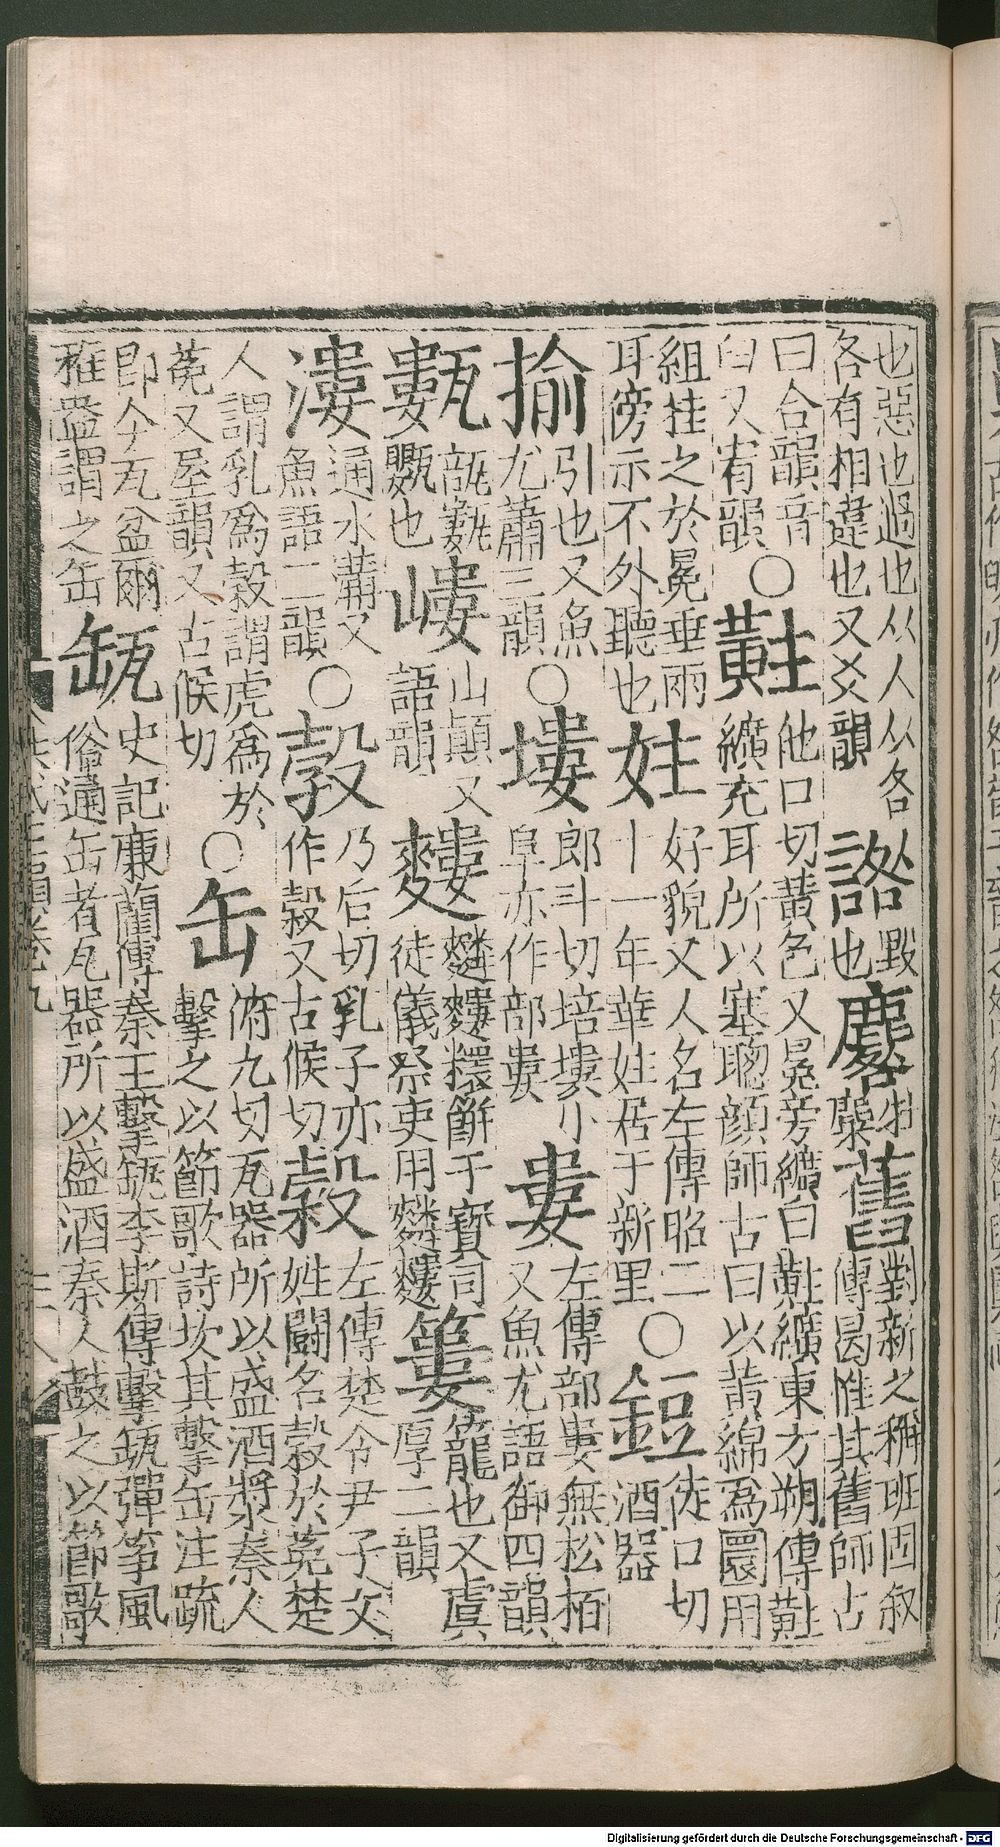 也惡也過也从人从各
各有相違也又爻韻
䛮毀
也
麔牝
麋
舊對新之稱班固叙
傳曷惟其舊師古
曰合韻音
臼又宥韻
〇黈他口切黃色又冕旁纊曰黈纊東方朔傳黈
纊充耳所以塞聰顔師古曰以黃綿爲圜用
組挂之於冕垂兩
耳傍示不外聽也
妵好貌又人名左傳昭二
十一年華妵居于新里
〇鋀徒口切
酒器
揄引也又魚
尤蕭三韻
〇塿郎斗切培塿小
阜亦作部婁
婁左傳部婁無松栢
又魚尤語御四韻
甊瓿甊
甖也
嶁山顛又
語韻
䝏䴲䝏糫餅干寶司
徒儀祭吏用䴲䝏
簍籠也又虞
厚二韻
漊通水溝又
魚語二韻
〇㝅乃后切乳子亦
作㝅又古候切
穀左傳楚令尹子文
姓鬬名穀於菟楚
人謂乳爲穀謂虎爲於
菟又屋韻又古候切
〇缶俯九切瓦器所以盛酒漿秦人
擊之以節歌詩坎其擊缶注疏
即今瓦盆爾
雅盎謂之缶
缻史記廉藺傳秦王擊缻李斯傳擊缻彈箏風
俗通缶者瓦器所以盛酒秦人鼓之以節歌
Digitalisierung gefördert durch die Deutsche Forschungsgemeinschaft - DFG